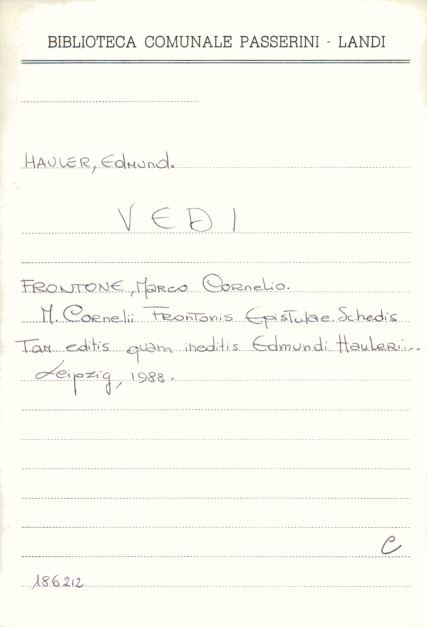 BIBLIOTECA COMUNALE PASSERINI - LANDI
HAULER, Edmund.
VEDI
FRONTONE, Marco Cornelio.
M. Cornelii Frontonis Epistulae. Schedis
Tam editis quam ineditis Edmundi Hauleri...
Leipzig, 1988.
C
186212